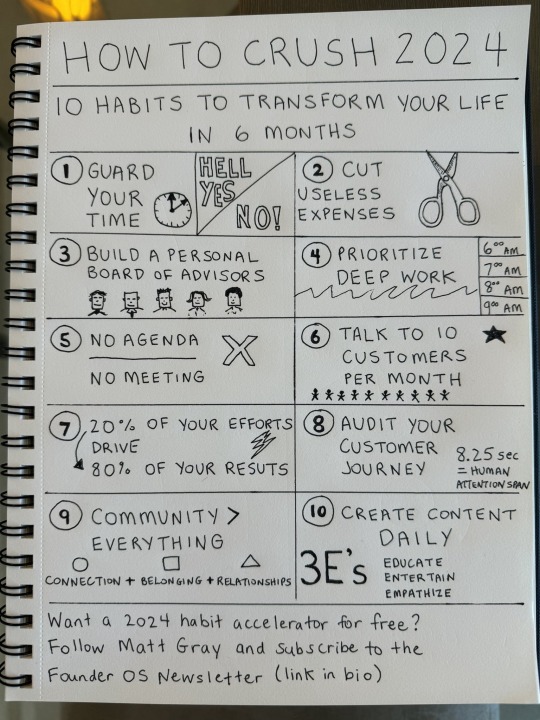 HOW TO CRUSH 2024
10 HABITS TO TRANSFORM YOUR LIFE
IN 6 MONTHS
1 GUARD
YOUR
TIME
HELL
YES
NO!
2 CUT
USELESS
EXPENSES
3 BUILD A PERSONAL
BOARD OF ADVISORS
4 PRIORITIZE
DEEP WORK
6:00 AM
7:00 AM
8:00 AM
9:00 AM
5 NO AGENDA
NO MEETING
6 TALK TO 10
CUSTOMERS
PER MONTH
7 20% OF YOUR EFFORTS
DRIVE
80% OF YOUR RESUTS
8 AUDIT YOUR
CUSTOMER
JOURNEY
8.25 sec
= HUMAN
ATTENTION SPAN
9 COMMUNITY >
EVERYTHING
CONNECTION + BELONGING + RELATIONSHIPS
10 CREATE CONTENT
DAILY
3E's
EDUCATE
ENTERTAIN
EMPATHIZE
Want a 2024 habit accelerator for free?
Follow Matt Gray and subscribe to the
Founder OS Newsletter (link in bio)